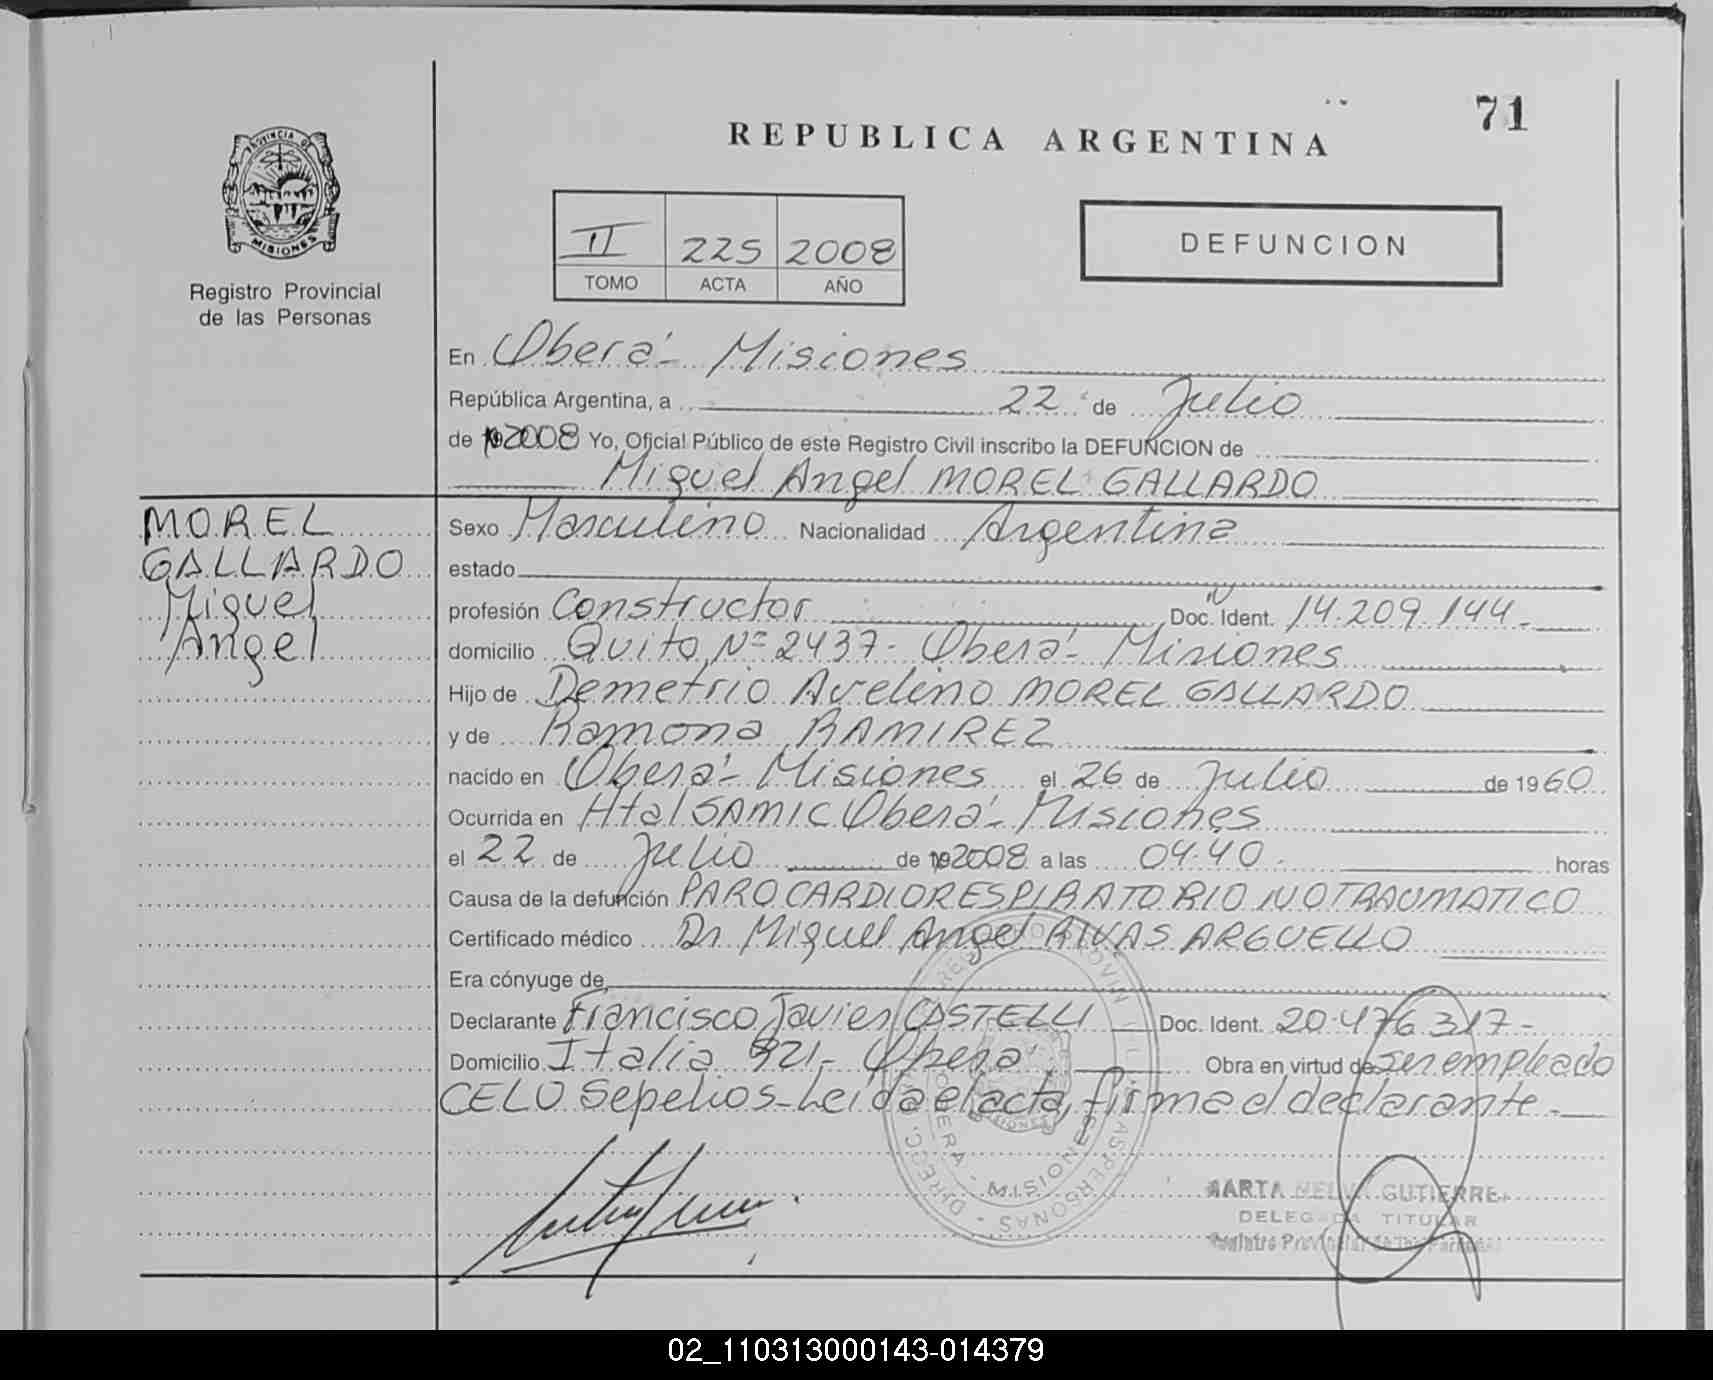 71
REPUBLICA ARGENTINA
PROVINCIA DE
MISIONES
Registro Provincial
de las Personas
II 225 2008
TOMO ACTA AÑO
DEFUNCION
En Oberá - Misiones
República Argentina, a 22 de Julio
de 192008 Yo, Oficial Público de este Registro Civil inscribo la DEFUNCION de
Miguel Angel MOREL GALLARDO
MOREL
GALLARDO
Miguel
Angel
Sexo Masculino Nacionalidad Argentina
estado
profesión Constructor Doc. Ident. 14.209.144-
domicilio Quito Nº 2437- Oberá - Misiones
Hijo de Demetrio Avelino MOREL GALLARDO
y de Ramona RAMIREZ
nacido en Oberá - Misiones el 26 de Julio de 1960
Ocurrida en Htal SAMIC Oberá - Misiones
el 22 de Julio de 192008 a las 04.40. horas
Causa de la defunción PARO CARDIORESPIRATORIO NO TRAUMATICO
Certificado médico Dr. Miguel Angel RIVAS ARGUELLO
Era cónyuge de
Declarante Francisco Javier CASTELLI Doc. Ident. 20.476.317-
Domicilio Italia 921- Oberá Obra en virtud de ser empleado
CELO Sepelios - Leída el acta, firma el declarante.-
MISIONES
MARTA GUTIERREZ
DELEGADA TITULAR
Registro Provincial de las Personas
02_110313000143-014379